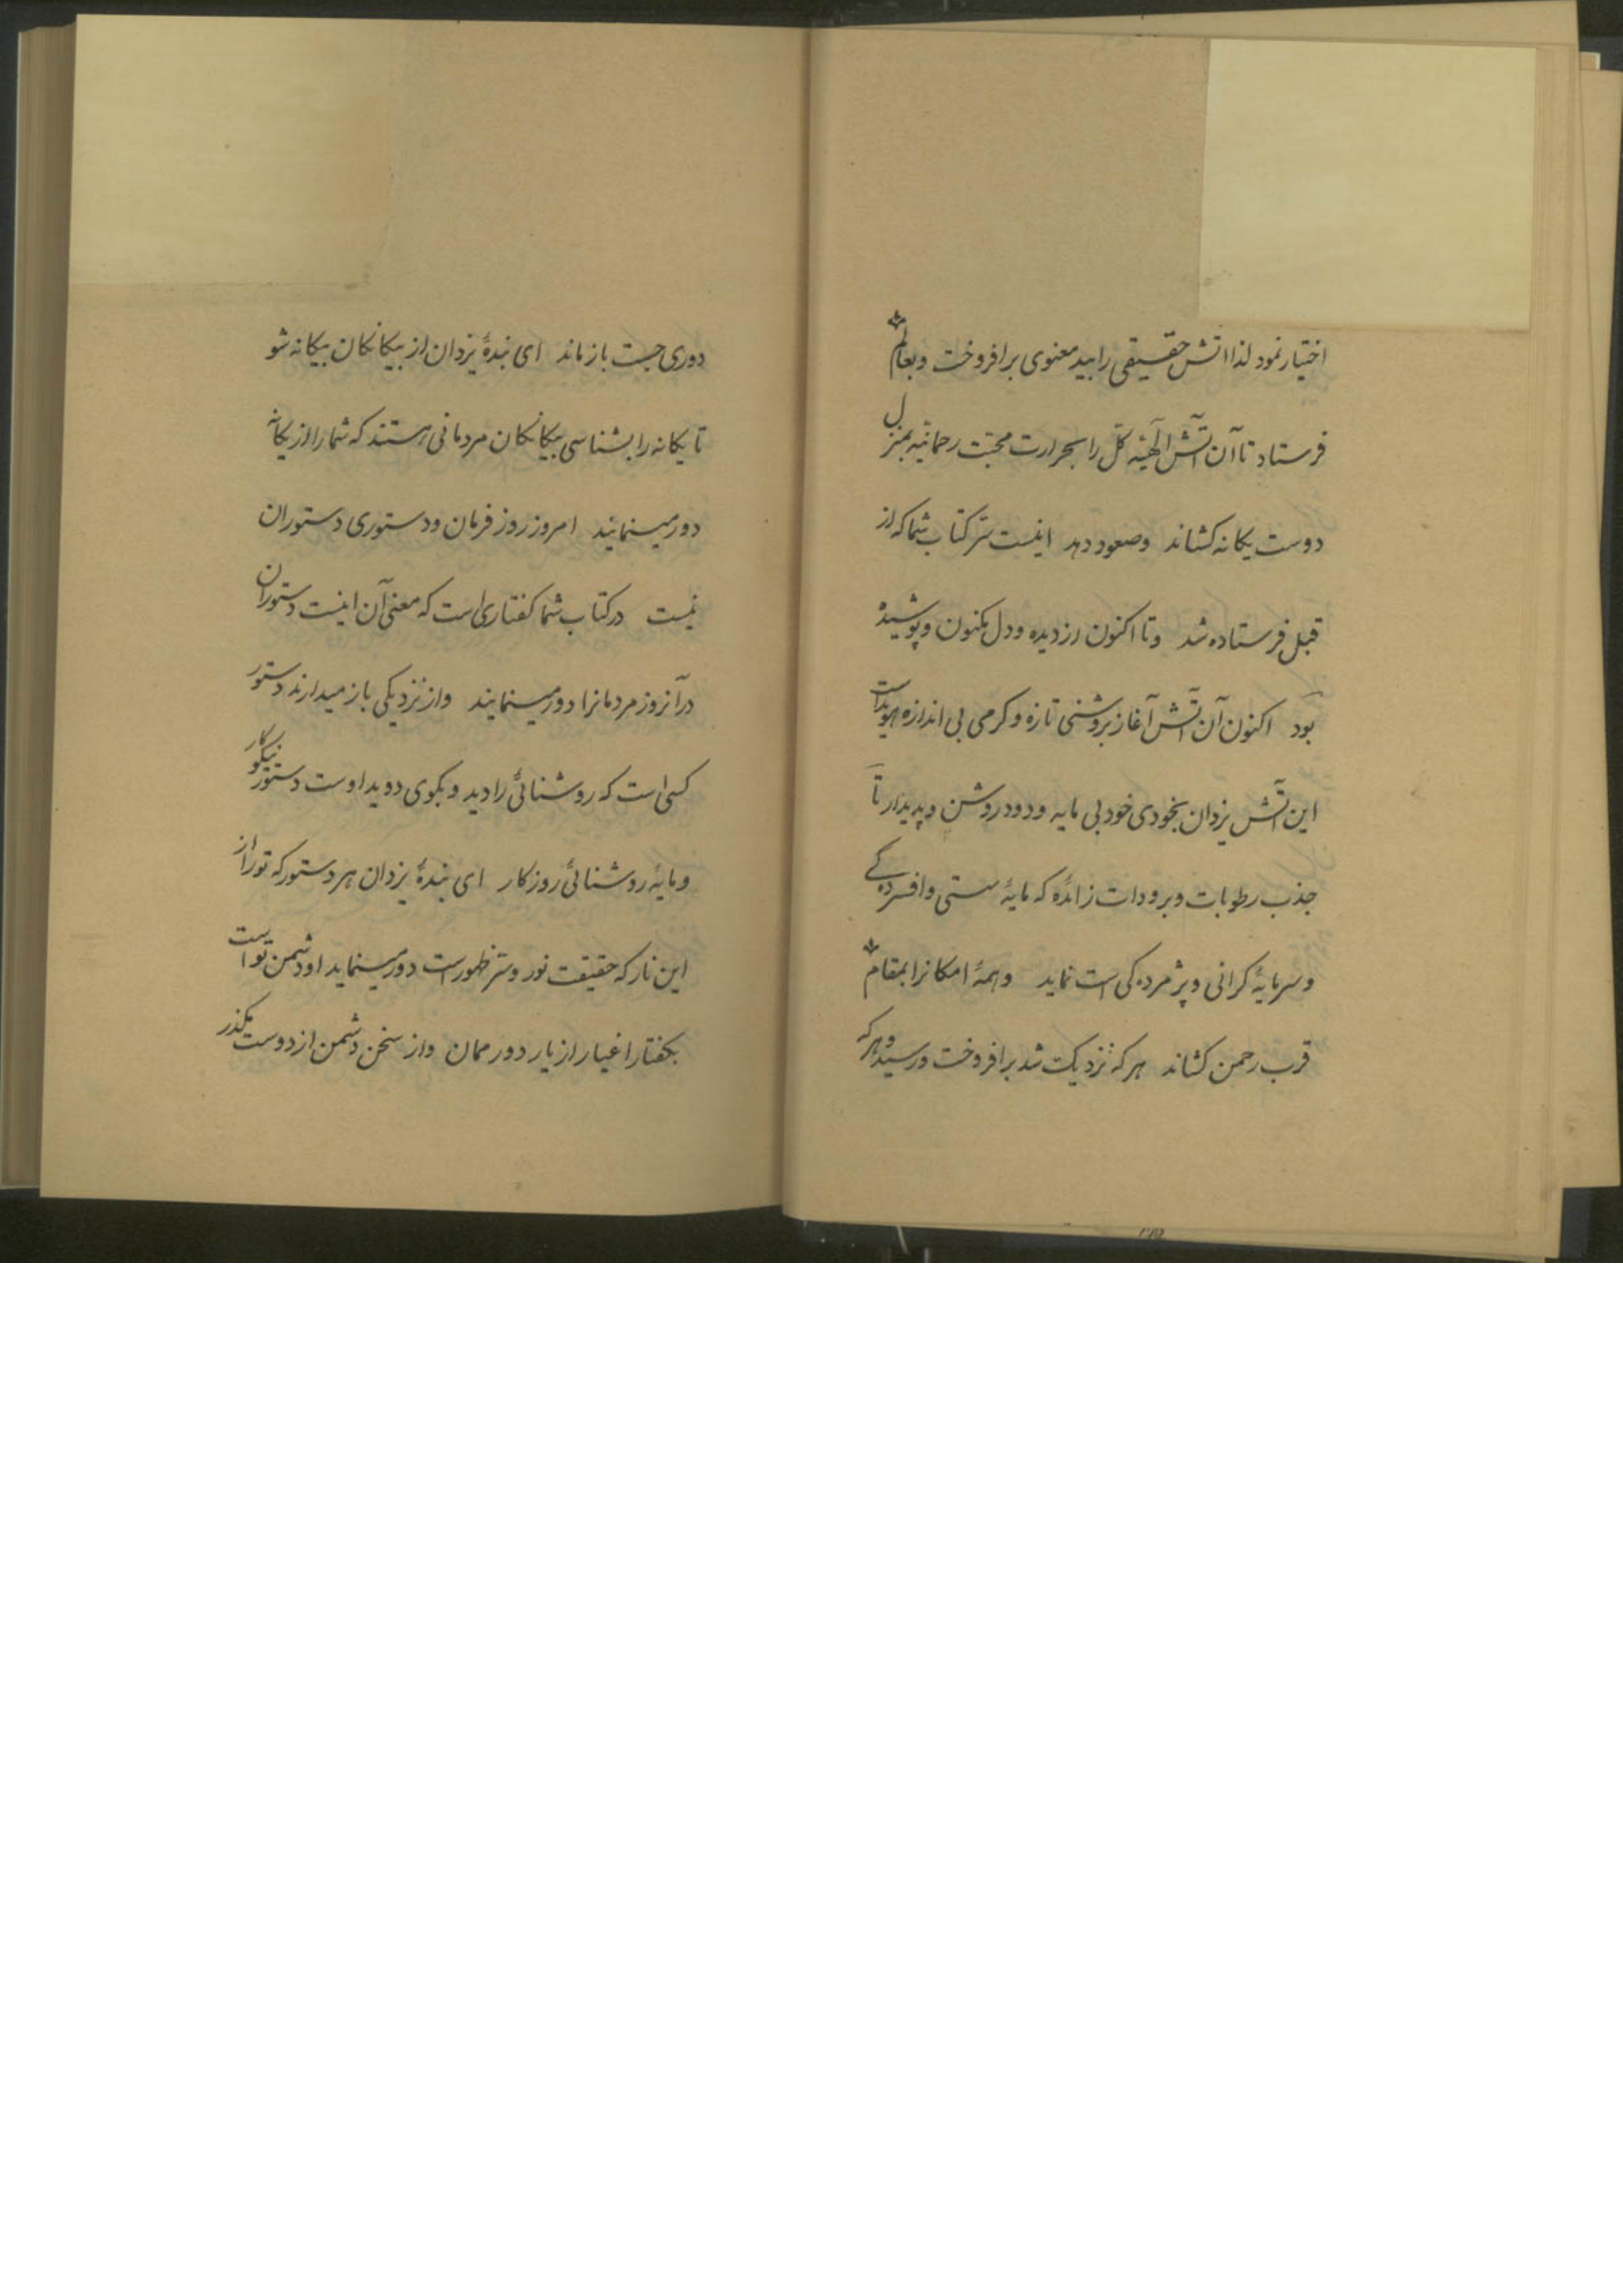 اختیار نمود لذا اتش حقیقی را بید معنوی برافروخت و بعالم
فرستاد تا آن آتش الٓهیّه کلّ را بحرارت محبّت رحمانیّه بمنزل
دوست یکانه کشاند وصعود دهد اینست سرّ کتاب شما که از
قبل فرستاده شد وتا اکنون از دیده ودل مکنون وپوشیده
بود اکنون آن آتش آغاز بروشنی تازه وکرمی بی اندازه هویداست
این آتش یزدان بخودی خود بی مایه ودود روشن وپدیدار تا
جذب رطوبات وبرودات زائده که مایهٔ سستی وافسرده‌کی
وسرمایهٔ کرانی وپژمرده‌کی است نماید وهمهٔ امکانرا بمقام
قرب رحمن کشاند هرکه نزدیک شد برافروخت ورسید وهرکه
دوری جست بازماند ای بندهٔ یزدان از بیکانکان بیکانه شو
تا یکانه را بشناسی بیکانکان مردمانی هستند که شما را از یکانه
دور مینمایند امروز روز فرمان ودستوری دستوران
نیست در کتاب شما کفتاری است که معنی آن اینست دستوران
در آنروز مردمانرا دور مینمایند واز نزدیکی باز میدارند دستور
کسی است که روشنائی را دید وبکوی دوید اوست دستور نیکوکار
ومایهٔ روشنائی روزکار ای بندهٔ یزدان هر دستور که تو را از
این نار که حقیقت نور وسرّ ظهور است دور مینماید او دشمن تو است
بکفتار اغیار از یار دور ممان واز سخن دشمن از دوست مکذر